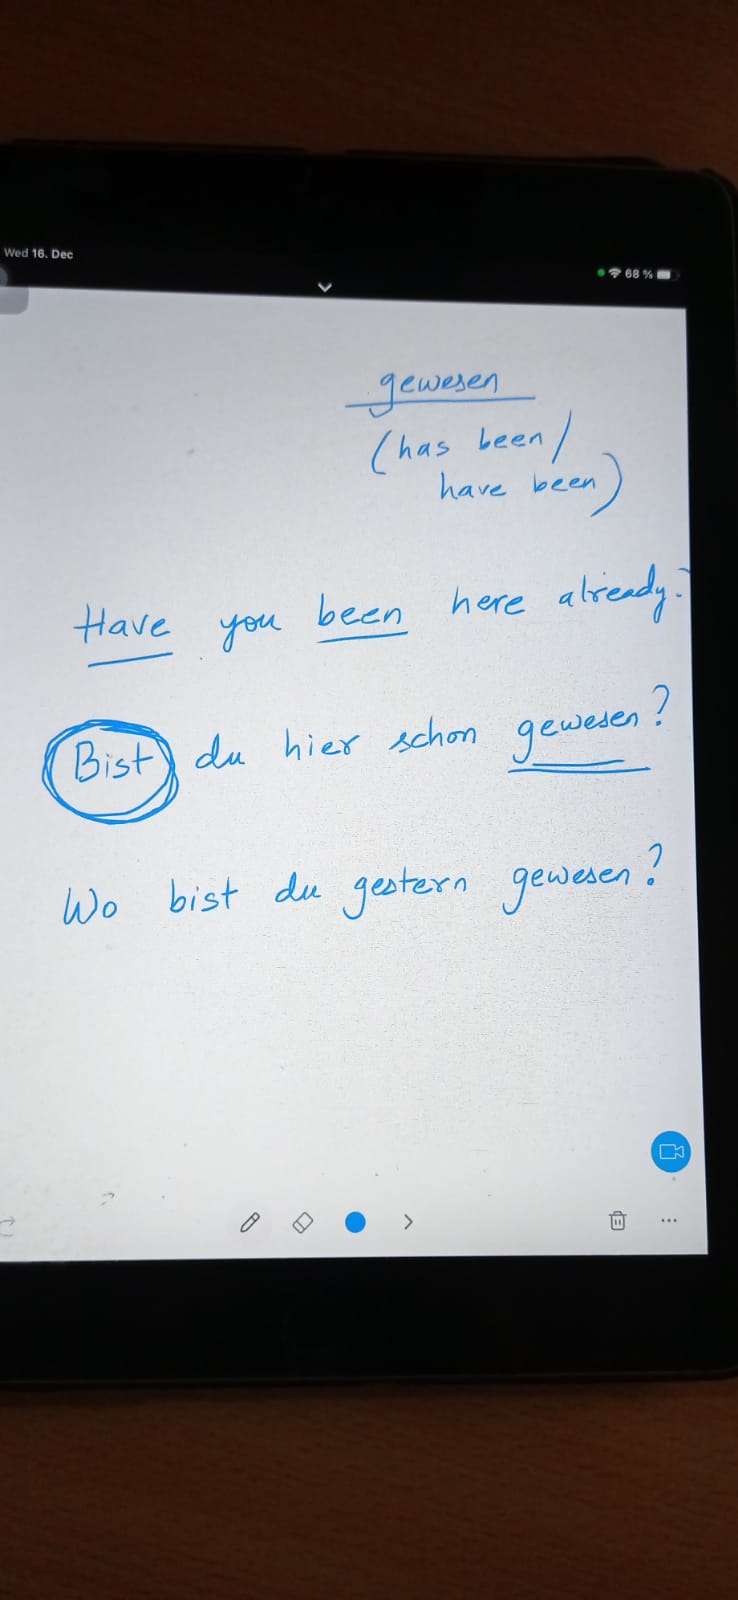 Wed 16. Dec
68 %
gewesen
(has been/
have been)
Have you been here already?
Bist du hier schon gewesen?
Wo bist du gestern gewesen?